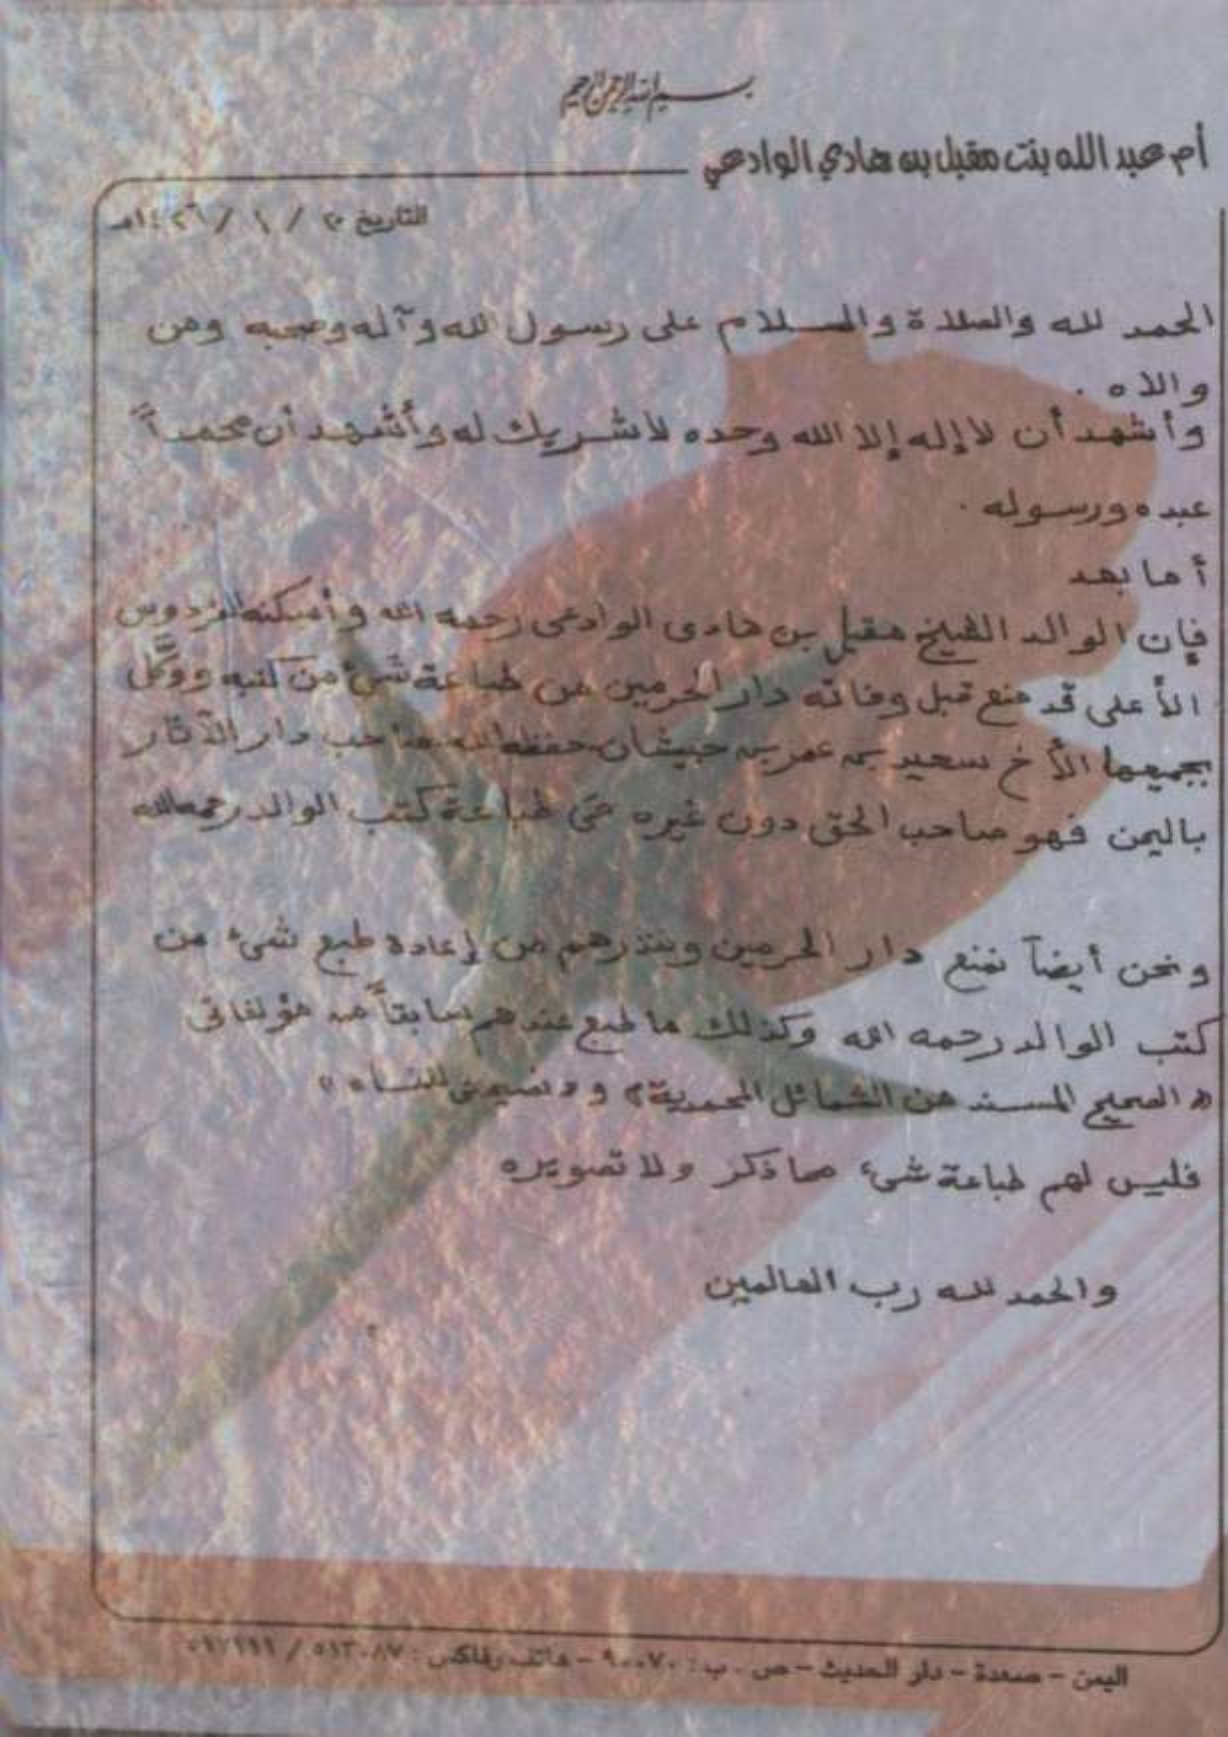 بسم الله الرحمن الرحيم
أم عبد الله بنت مقبل بن هادي الوادعي
التاريخ ٢٠ / ١ / ١٤٢٦هـ
الحمد لله والصلاة والسلام على رسول الله وآله وصحبه ومن
والاه .
وأشهد أن لا إله إلا الله وحده لا شريك له وأشهد أن محمداً
عبده ورسوله .
أما بعد
فإن الوالد الشيخ مقبل بن هادى الوادعى رحمه الله وأسكنه الفردوس
الأعلى قد منع قبل وفاته دار الحرمين من طباعة شئ من كتبه ووكَّل
بجميعها الأخ سعيد بن عمر بن حبيشان حفظه الله صاحب دار الآثار
باليمن فهو صاحب الحق دون غيره فى طباعة كتب الوالد رحمه الله
ونحن أيضاً نمنع دار الحرمين وننذرهم من إعادة طبع شئ من
كتب الوالد رحمه الله وكذلك ما طبع عندهم سابقاً من مؤلفاتى
« الصحيح المسند من الشمائل المحمدية » و « نصيحتى للنساء »
فليس لهم طباعة شئ مما ذكر ولا تصويره
والحمد لله رب العالمين
اليمن - صعدة - دار الحديث - ص . ب : ٩٠٠٧٠ - هاتف وفاكس : ٥١٣٠٨٧ /